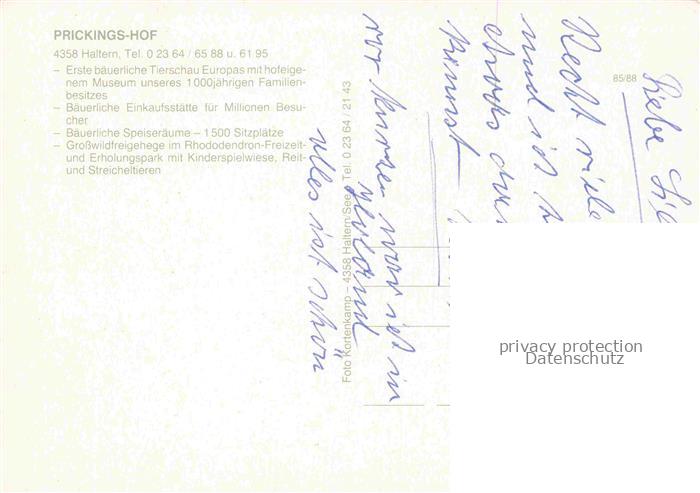 PRICKINGS-HOF
4358 Haltern, Tel. 0 23 64 / 65 88 u. 61 95
– Erste bäuerliche Tierschau Europas mit hofeige-
nem Museum unseres 1000jährigen Familien-
besitzes
– Bäuerliche Einkaufsstätte für Millionen Besu-
cher
– Bäuerliche Speiseräume – 1500 Sitzplätze
– Großwildfreigehege im Rhododendron-Freizeit-
und Erholungspark mit Kinderspielwiese, Reit-
und Streicheltieren
Foto Kortenkamp – 4358 Haltern/See – Tel. 0 23 64 / 21 43
85/88
Liebe
Recht viele
und ist
etwas
kennst
vor kurzem war ist in
alles ist schön
privacy protection
Datenschutz